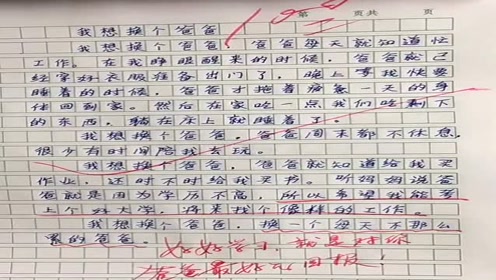 第 页共 页
我想换个爸爸
我想换个爸爸，爸爸每天就知道忙
工作。在我睁眼醒来的时候，爸爸就已
经穿好衣服准备出门了，晚上等我快要
睡着的时候，爸爸才拖着疲惫一天的身
体回到家。然后在家吃一点我们吃剩下
的东西，躺在床上就睡着了。
我想换个爸爸，爸爸周末都不休息，
很少有时间陪我去玩。
我想换个爸爸，爸爸就知道给我买
作业，还时不时给我买书。听妈妈说爸
爸就是因为学历不高，所以希望我能考
上个好大学，将来找个像样的工作。
我想换个爸爸，换一个每天不那么
累的爸爸。好好学习，就是对你
爸爸最好的回报！